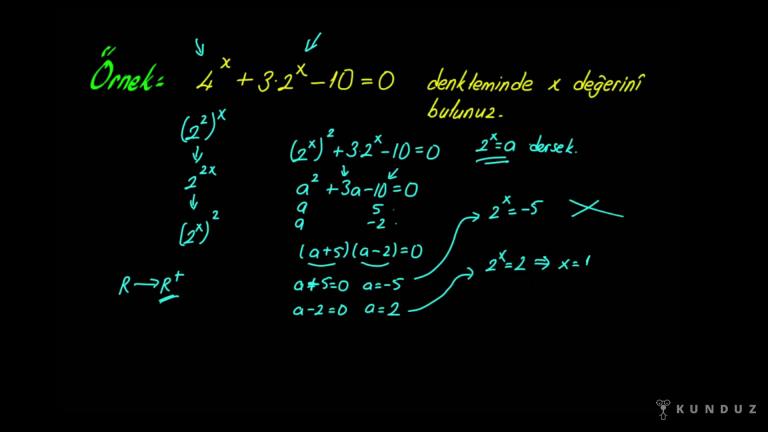 Örnek: 4^x + 3·2^x − 10 = 0 denkleminde x değerini
bulunuz.
(2^2)^x
2^2x
(2^x)^2
R → R^+
(2^x)^2 + 3·2^x − 10 = 0 2^x = a dersek.
a^2 + 3a − 10 = 0
a 5
a −2
(a+5)(a−2) = 0
a+5=0 a=−5
a−2=0 a=2
2^x = −5
2^x = 2 ⇒ x = 1
KUNDUZ